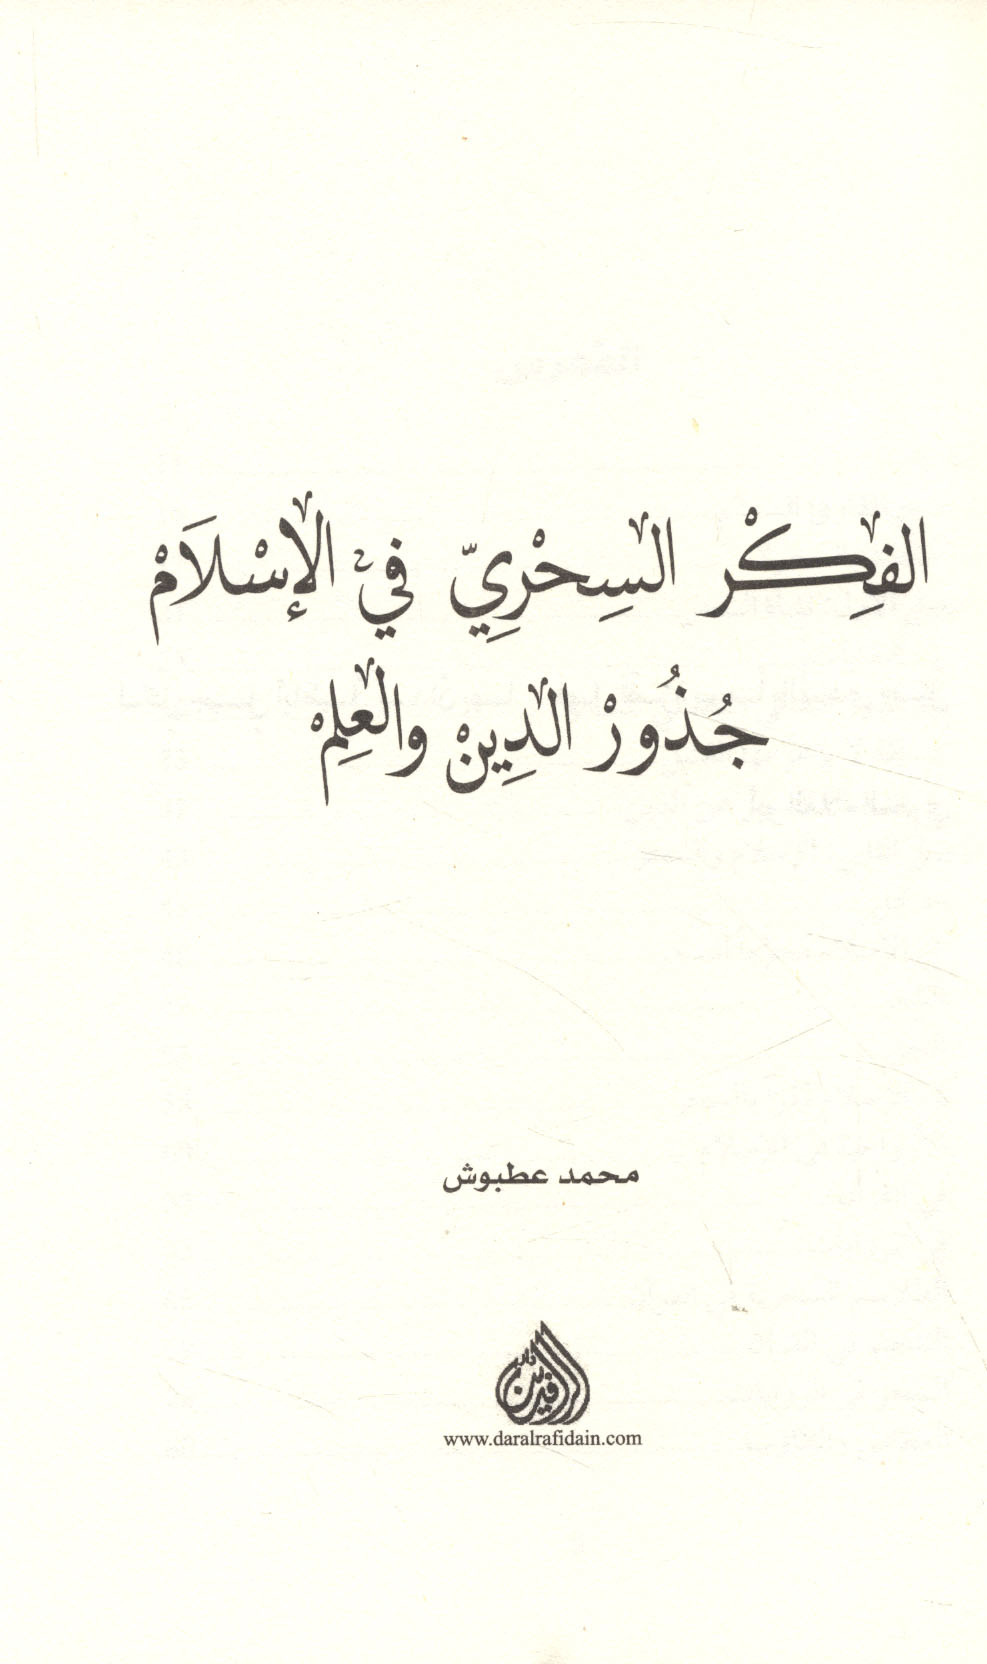 الفِكْر السِحْرِيّ فيْ الإسْلاَمْ
جُذُورْ الدِينْ والعِلمْ
محمد عطبوش
دار الرافدين
www.daralrafidain.com